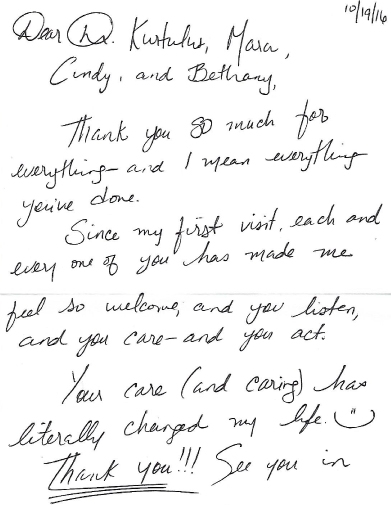 10/19/16
Dear Dr. Kurtulus, Mara,
Cindy, and Bethany,
Thank you SO much for
everything—and I mean everything
you've done.
Since my first visit, each and
every one of you has made me
feel so welcome, and you listen,
and you care—and you act.
Your care (and caring) has
literally changed my life.
Thank you!!! See you in